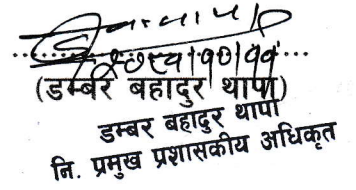 (डम्बर बहादुर थापा)
डम्बर बहादुर थापा
नि. प्रमुख प्रशासकीय अधिकृत